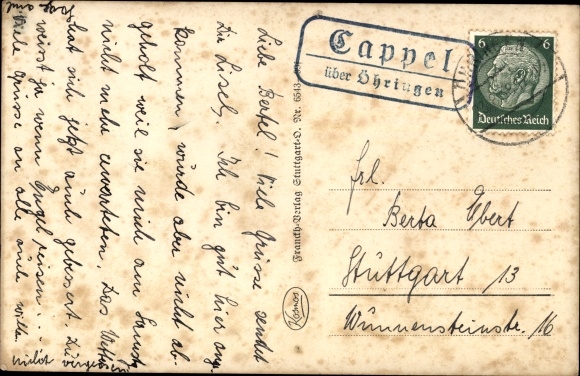 Liebe Bertel! Viele Grüsse sendet
Dir Lisel. Ich bin gut hier ange
kommen, wurde aber nicht ab-
geholt weil sie mich am Samstag
nicht mehr erwarteten. Das Wetter
hat sich jetzt auch gebessert.
weisst ja wenn Engel reisen...
Viele Grüsse an alle
nicht vergessen
Franckh-Verlag Stuttgart-O. Nr.
Kosmos
Cappel
über Öhringen
6 6
Deutsches Reich
Frl.
Berta Ebert
Stuttgart 13
Wunnensteinstr. 16